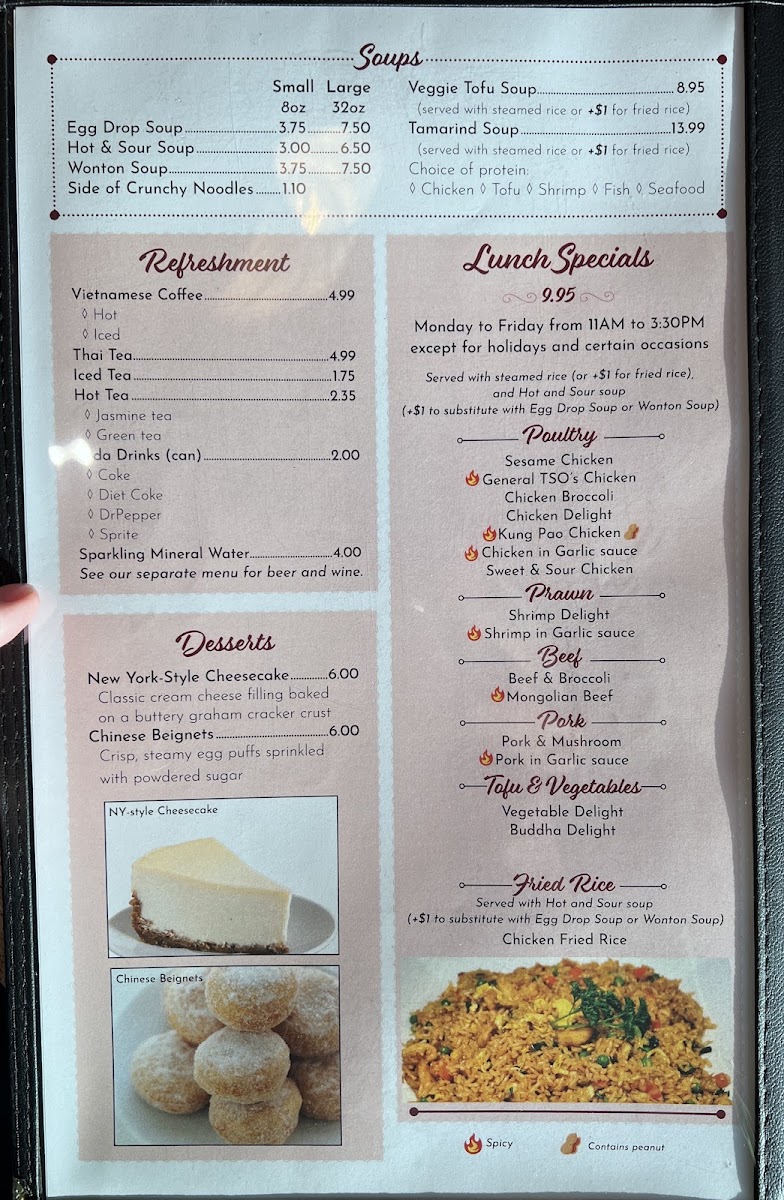 Soups
Small Large
8oz 32oz
Egg Drop Soup 3.75 7.50
Hot & Sour Soup 3.00 6.50
Wonton Soup 3.75 7.50
Side of Crunchy Noodles 1.10
Veggie Tofu Soup 8.95
(served with steamed rice or +$1 for fried rice)
Tamarind Soup 13.99
(served with steamed rice or +$1 for fried rice)
Choice of protein:
◊ Chicken ◊ Tofu ◊ Shrimp ◊ Fish ◊ Seafood
Refreshment
Vietnamese Coffee 4.99
◊ Hot
◊ Iced
Thai Tea 4.99
Iced Tea 1.75
Hot Tea 2.35
◊ Jasmine tea
◊ Green tea
da Drinks (can) 2.00
◊ Coke
◊ Diet Coke
◊ DrPepper
◊ Sprite
Sparkling Mineral Water 4.00
See our separate menu for beer and wine.
Desserts
New York-Style Cheesecake 6.00
Classic cream cheese filling baked
on a buttery graham cracker crust
Chinese Beignets 6.00
Crisp, steamy egg puffs sprinkled
with powdered sugar
NY-style Cheesecake
Chinese Beignets
Lunch Specials
9.95
Monday to Friday from 11AM to 3:30PM
except for holidays and certain occasions
Served with steamed rice (or +$1 for fried rice),
and Hot and Sour soup
(+$1 to substitute with Egg Drop Soup or Wonton Soup)
Poultry
Sesame Chicken
General TSO's Chicken
Chicken Broccoli
Chicken Delight
Kung Pao Chicken
Chicken in Garlic sauce
Sweet & Sour Chicken
Prawn
Shrimp Delight
Shrimp in Garlic sauce
Beef
Beef & Broccoli
Mongolian Beef
Pork
Pork & Mushroom
Pork in Garlic sauce
Tofu & Vegetables
Vegetable Delight
Buddha Delight
Fried Rice
Served with Hot and Sour soup
(+$1 to substitute with Egg Drop Soup or Wonton Soup)
Chicken Fried Rice
Spicy
Contains peanut